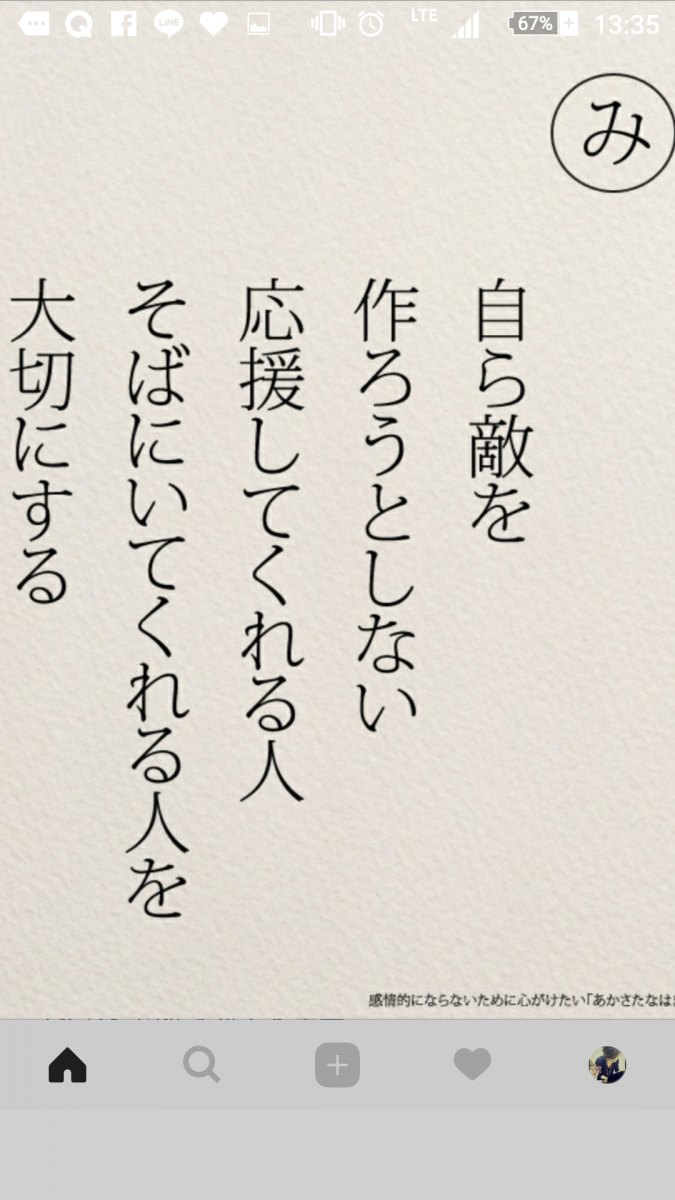 LINE
LTE
67%
13:35
み
自ら敵を
作ろうとしない
応援してくれる人
そばにいてくれる人を
大切にする
感情的にならないために心がけたい「あかさたなは